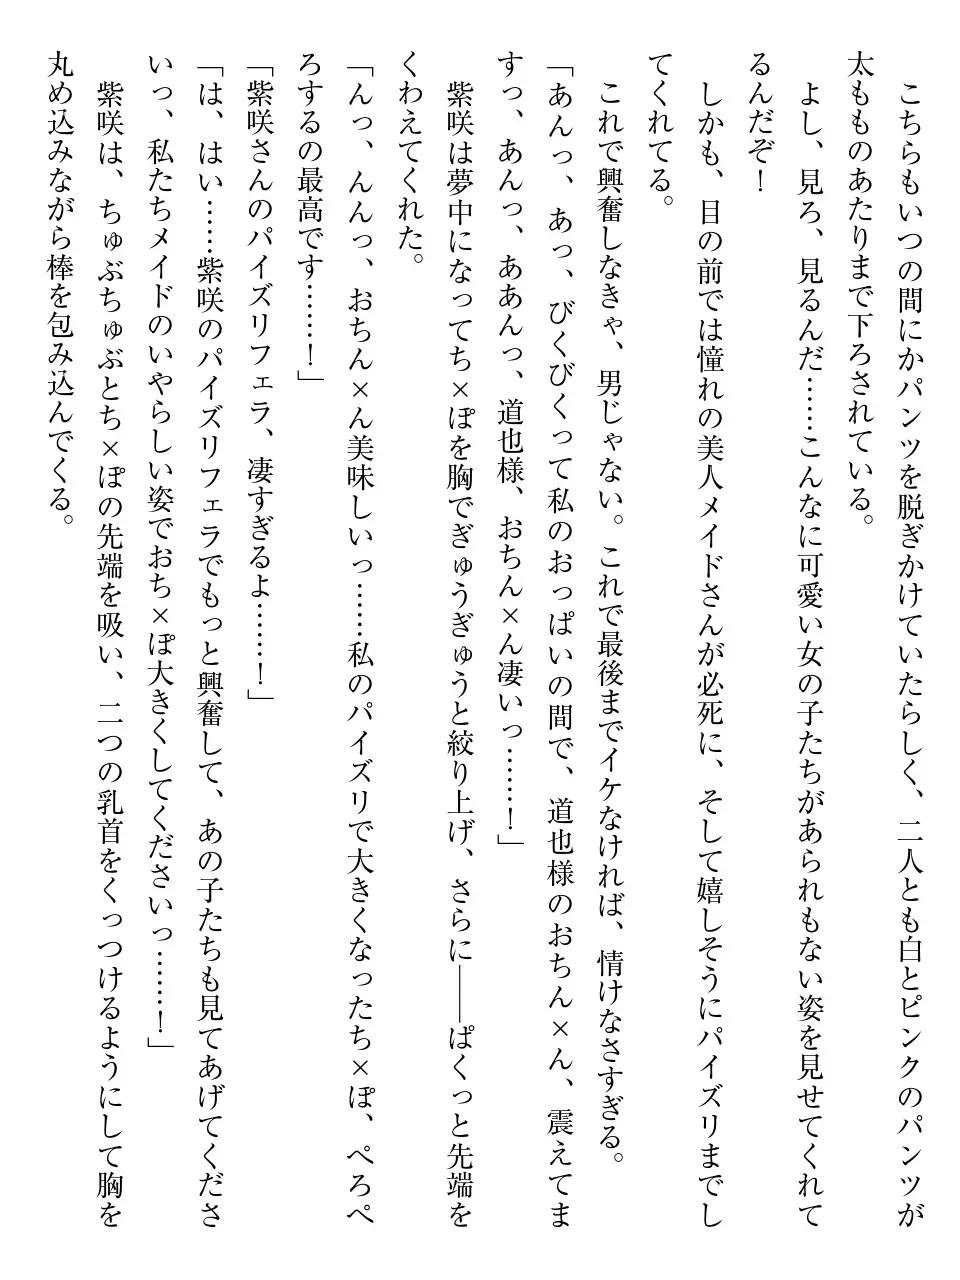 こちらもいつの間にかパンツを脱ぎかけていたらしく、二人とも白とピンクのパンツが
太もものあたりまで下ろされている。
よし、見ろ、見るんだ……こんなに可愛い女の子たちがあられもない姿を見せてくれて
るんだぞ！
しかも、目の前では憧れの美人メイドさんが必死に、そして嬉しそうにパイズリまでし
てくれてる。
これで興奮しなきゃ、男じゃない。これで最後までイケなければ、情けなさすぎる。
「あんっ、あっ、びくびくって私のおっぱいの間で、道也様のおちん×ん、震えてま
すっ、あんっ、ああんっ、道也様、おちん×ん凄いっ……！」
紫咲は夢中になってち×ぽを胸でぎゅうぎゅうと絞り上げ、さらに――ぱくっと先端を
くわえてくれた。
「んっ、んんっ、おちん×ん美味しいっ……私のパイズリで大きくなったち×ぽ、ぺろぺ
ろするの最高です……！」
「紫咲さんのパイズリフェラ、凄すぎるよ……！」
「は、はい……紫咲のパイズリフェラでもっと興奮して、あの子たちも見てあげてくださ
いっ、私たちメイドのいやらしい姿でおち×ぽ大きくしてくださいっ……！」
紫咲は、ちゅぶちゅぶとち×ぽの先端を吸い、二つの乳首をくっつけるようにして胸を
丸め込みながら棒を包み込んでくる。